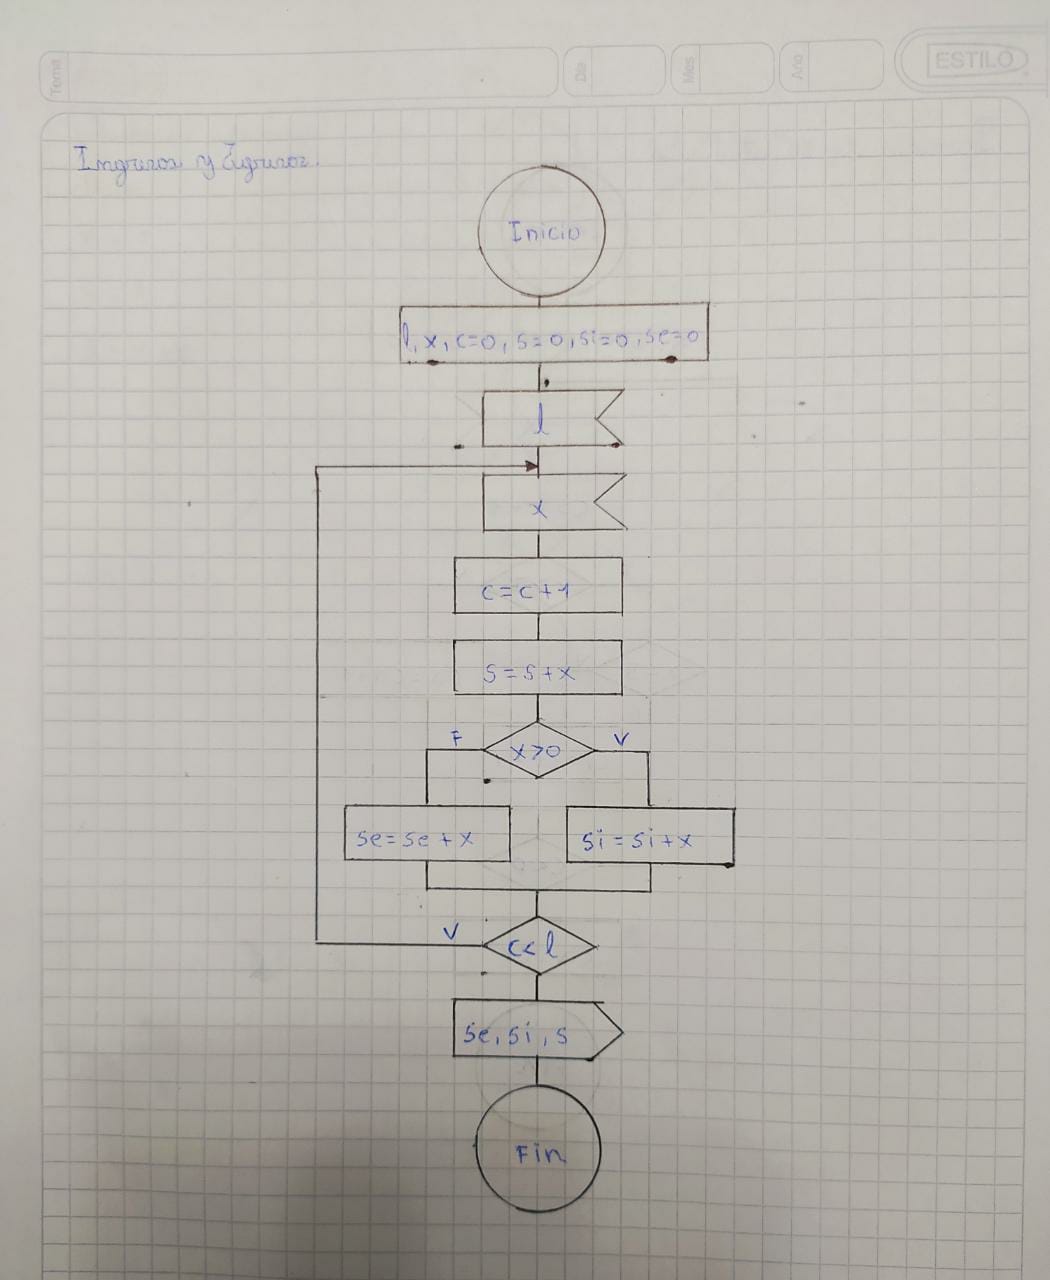 Tema
Dia
Mes
Año
ESTILO
Ingresos y Egresos.
Inicio
l, x, c=0, s=0, si=0, se=0
l
x
c=c+1
s=s+x
F
x>0
V
se=se+x
si=si+x
V
c<l
se, si, s
Fin